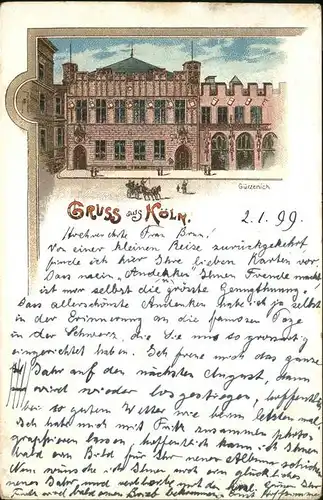 Gürzenich
GRUSS aus KÖLN.
2.1.99.
Hochverehrte Frau
Von einer kleinen Reise zurückgekehrt
finde ich hier Ihre lieben Karten vor.
Das mein "Andenken" Ihnen Freude macht
ist mir selbst die grösste Genugthuung.
Das allerschönste Andenken habe ich ja selbst
in der Erinnerung an die famosen Tage
in der Schweiz, die Sie uns so
eingerichtet haben. Ich freue mich das ganze
Jahr auf den nächsten August, dann
wird wieder losgestiegen, hoffentlich
bei so gutem Wetter wie beim letzten mal.
Ich habe mich mit Fritz zusammen photo-
graphieren lassen hoffentlich kann ich Ihnen
bald ein Bild für Ihr neues Album schicken
Nun wünsche ich Ihnen noch ein glückliches
neues Jahr und mit
bald einen Brief bekommen